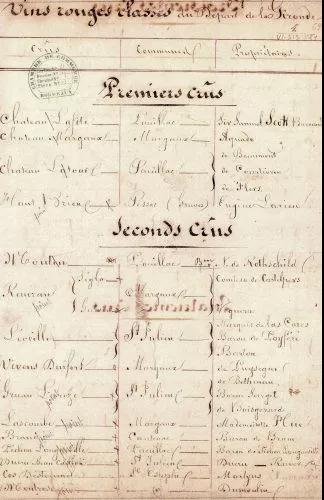 Vins rouges classés du Départ. de la Gironde
Crûs Communes Propriétaires
CHAMBRE DE COMMERCE BORDEAUX
Premiers Crûs
Chateau Lafite Pauillac Sir Samuel Scott
Chateau Margaux Margaux Aguado
Chateau Latour Pauillac de Beaumont
de Courtivron
de Flers
Haut Brion Pessac (Graves) Eugène Larieu
Seconds Crûs
Mouton Pauillac Bon N. de Rothschild
Rauzan Ségla Margaux Comtesse de Castelpers
Léoville St Julien Marquis de las Cases
Baron de Poyféré
Barton
Vivens Durfort Margaux de Puységur
de Bethmann
Gruau Laroze St Julien Baron Sarget
de Boisgerard
Lascombe Margaux Mademoiselle
Brane Cantenac Baron de Brane
Pichon Longueville Pauillac Baron de Pichon Longueville
Ducru Beau Caillou St Julien Ducru Ravez
Cos Destournel St Estèphe Martyns
Montrose Dumoulin